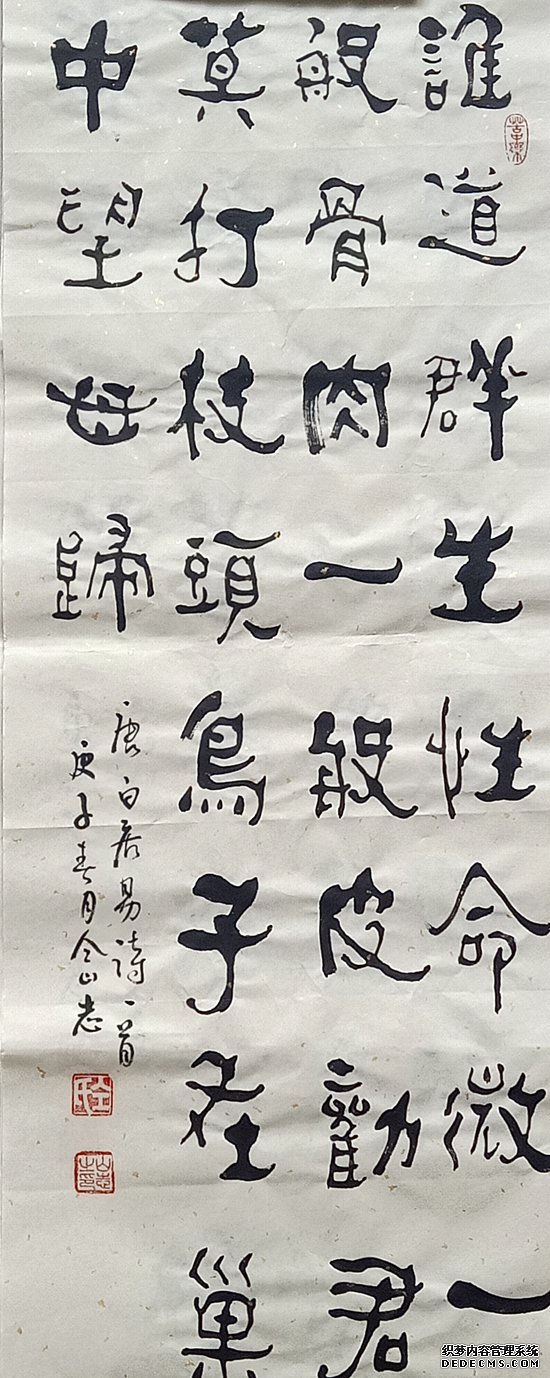 誰道群生性命微一
般骨肉一般皮勸君
莫打枝頭鳥子在巢
中望母歸
唐白居易詩一首
庚子春月山志
织梦内容管理系统
DEDECMS.COM